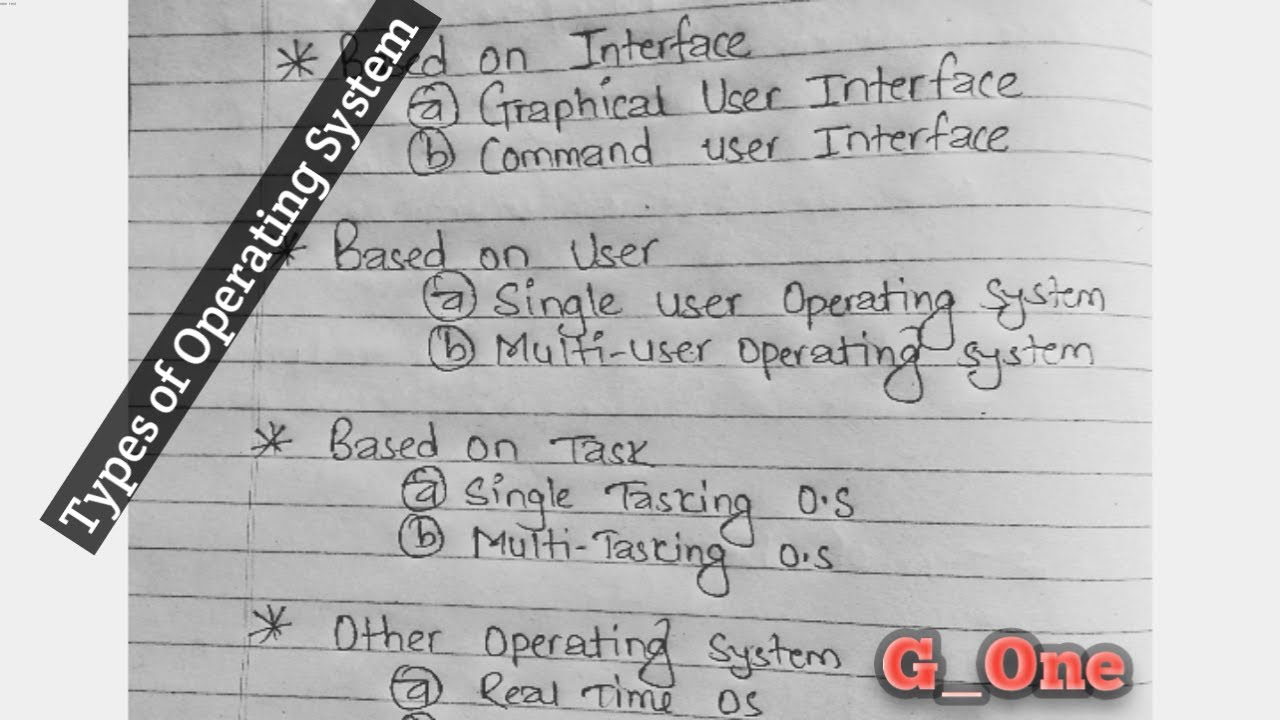 Types of Operating System
* Based on Interface
(a) Graphical User Interface
(b) Command user Interface
* Based on User
(a) Single user Operating System
(b) Multi-user Operating System
* Based on Task
(a) Single Tasking O.S
(b) Multi-Tasking O.S
* Other Operating System
(a) Real Time OS
G_One